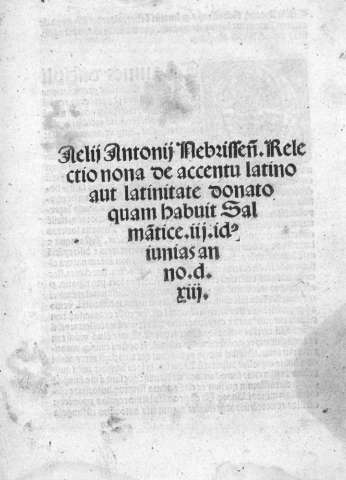 Aelij Antonij Nebrissen̄. Rele
ctio nona de accentu latino
aut latinitate donato
quam habuit Sal
mātice. iij. idꝰ
iunias an
no. d.
xiij.